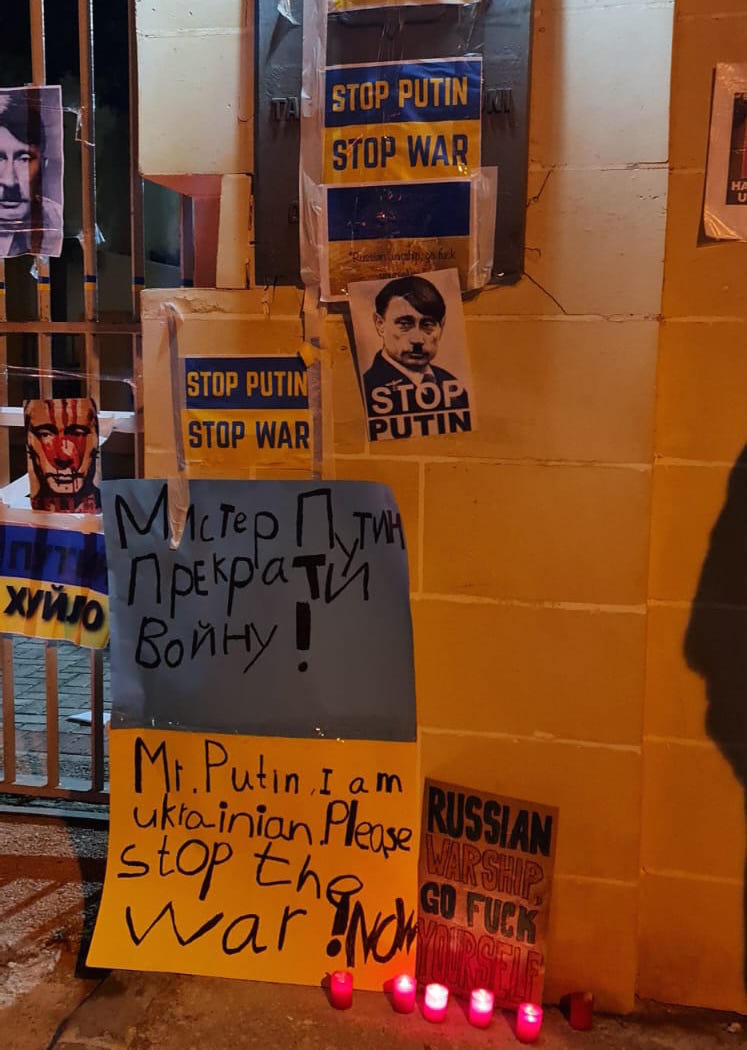 STOP PUTIN
STOP WAR
"Russian warship, go fuck
STOP
PUTIN
STOP PUTIN
STOP WAR
ПУТИ
ХУЙЛО
Мистер Путин
Прекрати
Войну!
Mr. Putin, I am
ukrainian. Please
stop the
war! NOW
RUSSIAN
WARSHIP,
GO FUCK
YOURSELF